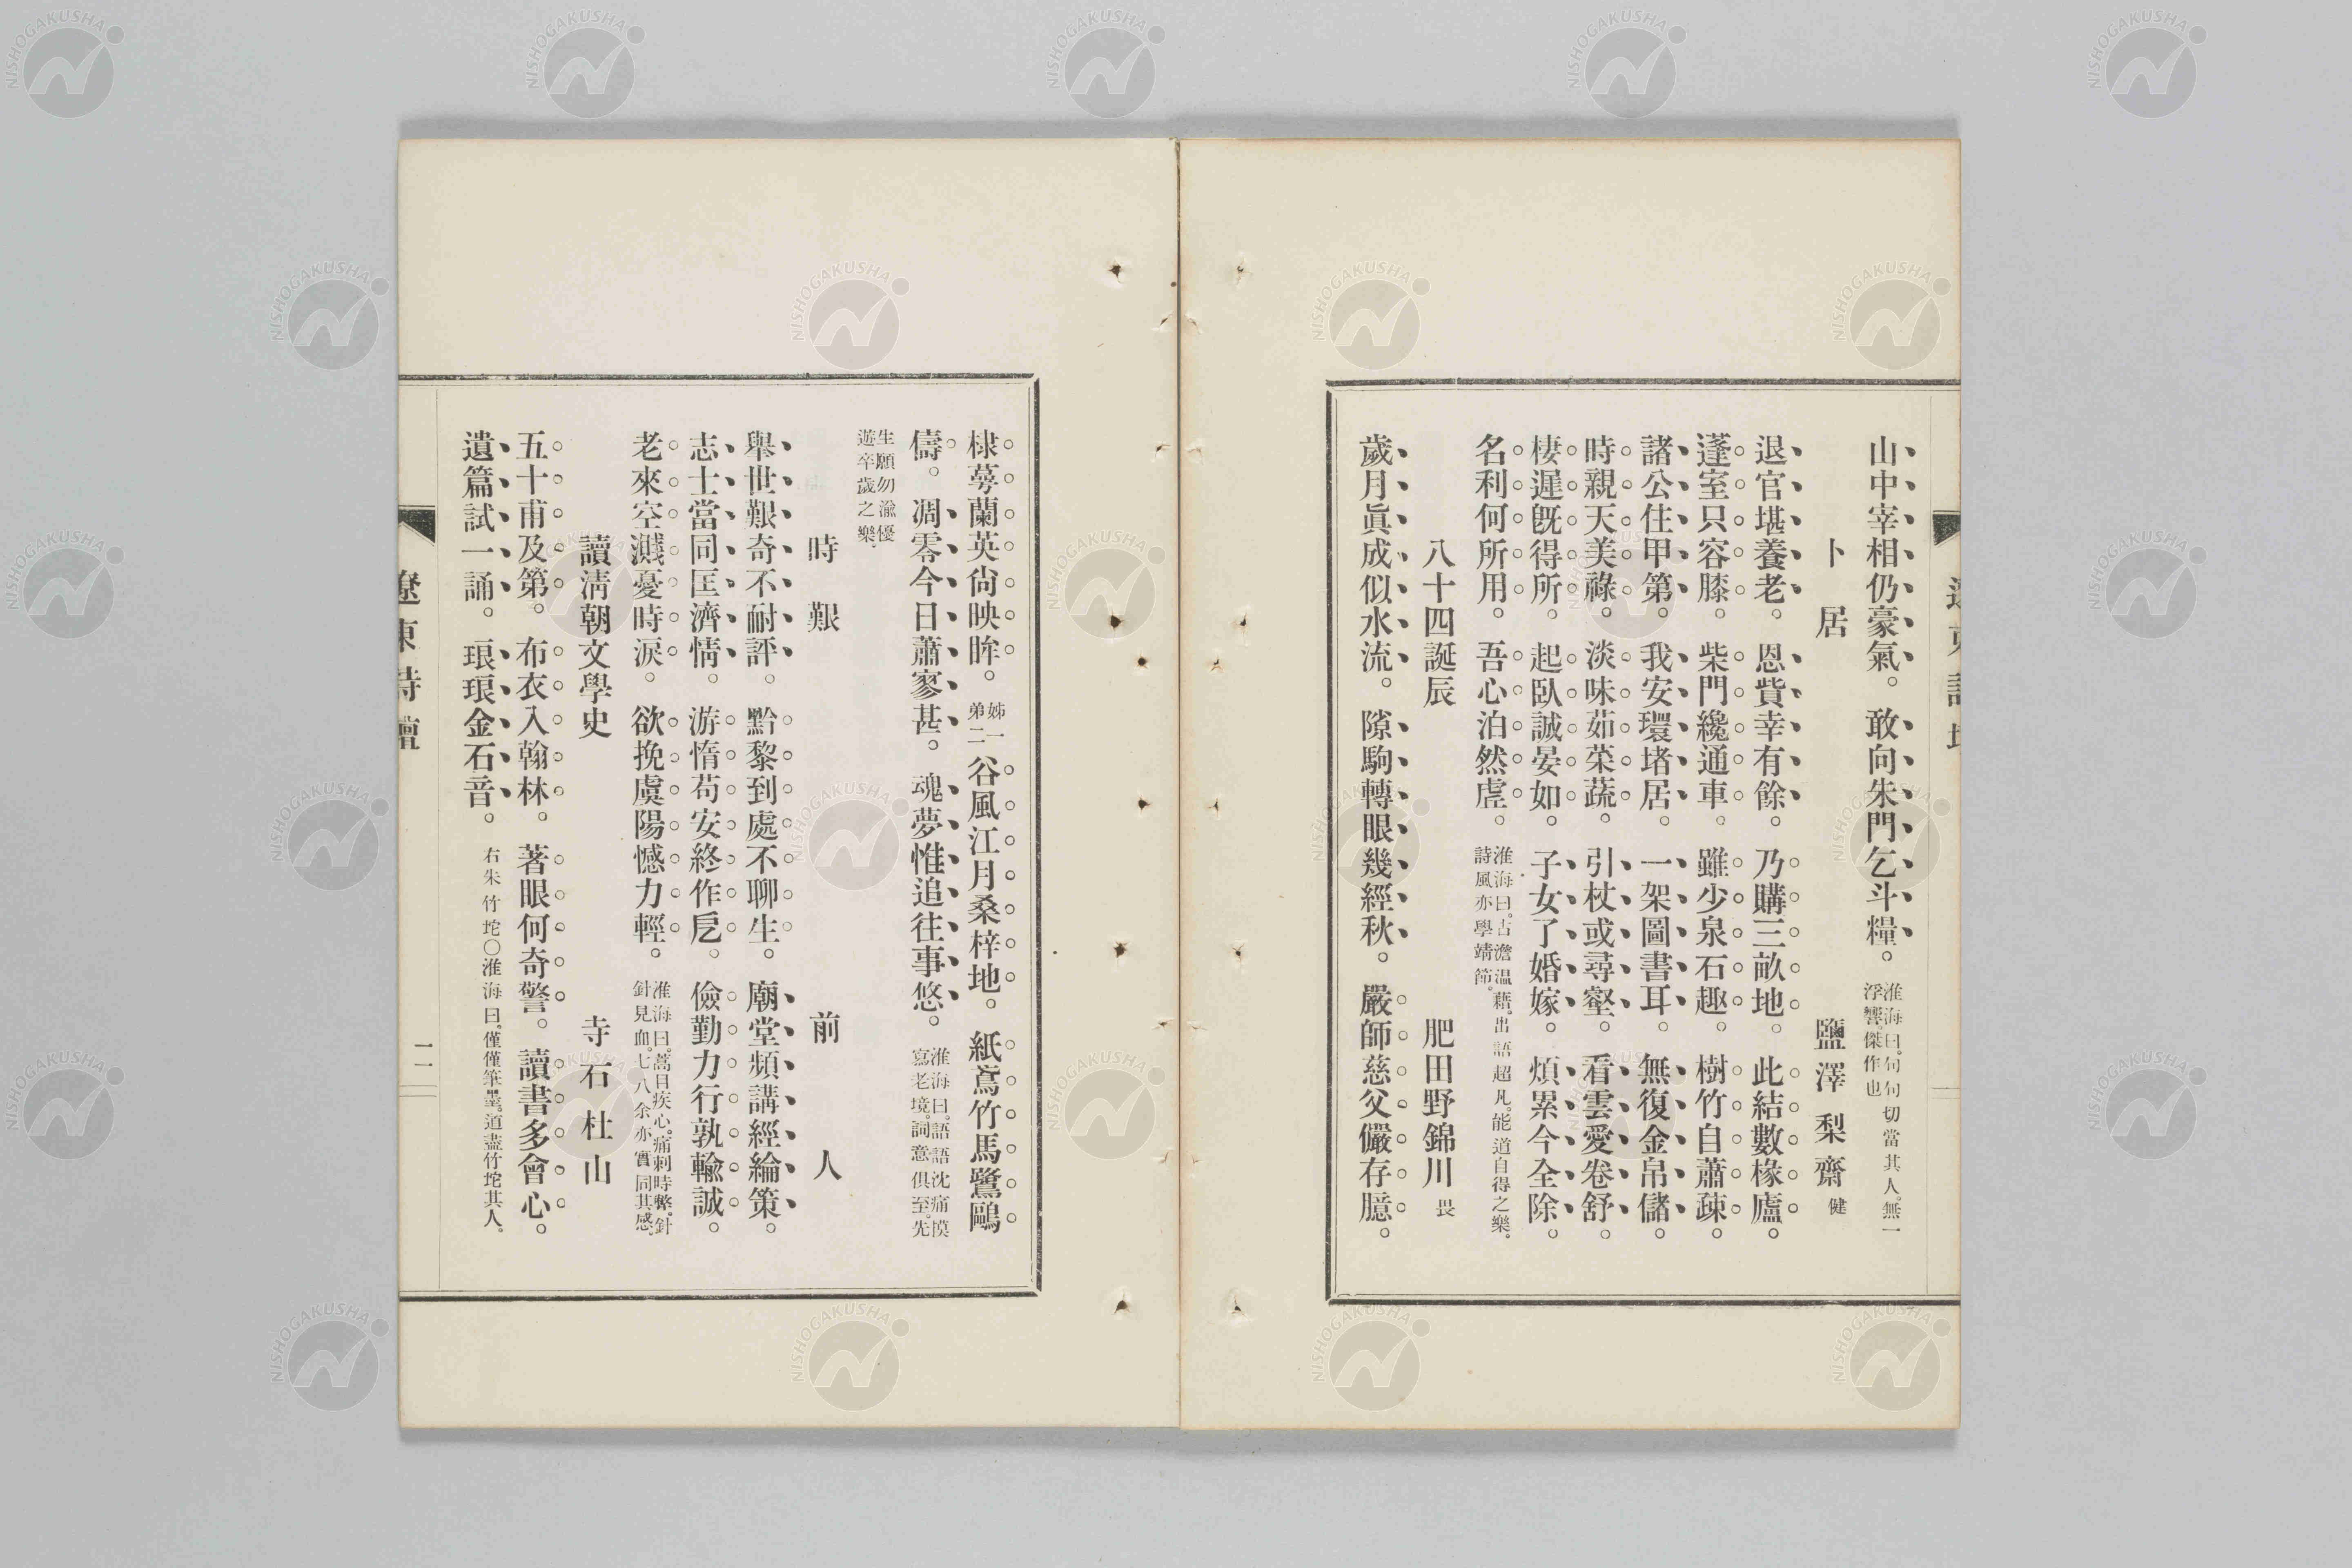 山中宰相仍豪氣。敢向朱門乞斗糧。淮海曰。句句切當其人。無一浮響。傑作也
卜居 鹽澤梨齋 健
退官堪養老。恩貲幸有餘。乃購三畝地。此結數椽廬。
蓬室只容膝。柴門纔通車。雖少泉石趣。樹竹自蕭疎。
諸公住甲第。我安環堵居。一架圖書耳。無復金帛儲。
時親天美祿。淡味茹菜蔬。引杖或尋壑。看雲愛卷舒。
棲遲旣得所。起臥誠晏如。子女了婚嫁。煩累今全除。
名利何所用。吾心泊然虛。淮海曰。古澹温藉。出語超凡。能道自得之樂。詩風亦學靖節。
八十四誕辰 肥田野錦川 畏
歲月眞成似水流。隙駒轉眼幾經秋。嚴師慈父儼存臆。
棣蕚蘭英尙映眸。姊一弟二谷風江月桑梓地。紙鳶竹馬鷺鷗
儔。凋零今日蕭寥甚。魂夢惟追往事悠。淮海曰。語語沈痛摸寫老境。詞意俱至。先
生願勿渝優遊卒歲之樂.
時艱 前人
舉世艱奇不耐評。黔黎到處不聊生。廟堂頻講經綸策。
志士當同匡濟情。游惰苟安終作戹。儉勤力行孰輸誠。
老來空濺憂時淚。欲挽虞陽憾力輕。淮海曰。蒿目疾心。痛刺時弊。針針見血。七八余亦實同其感。
讀淸朝文學史 寺石杜山
五十甫及第。布衣入翰林。著眼何奇警。讀書多會心。
遺篇試一誦。琅琅金石音。右朱竹垞〇淮海曰。僅僅筆墨。道盡竹垞其人。
遼東詩壇
一一
NISHOGAKUSHA